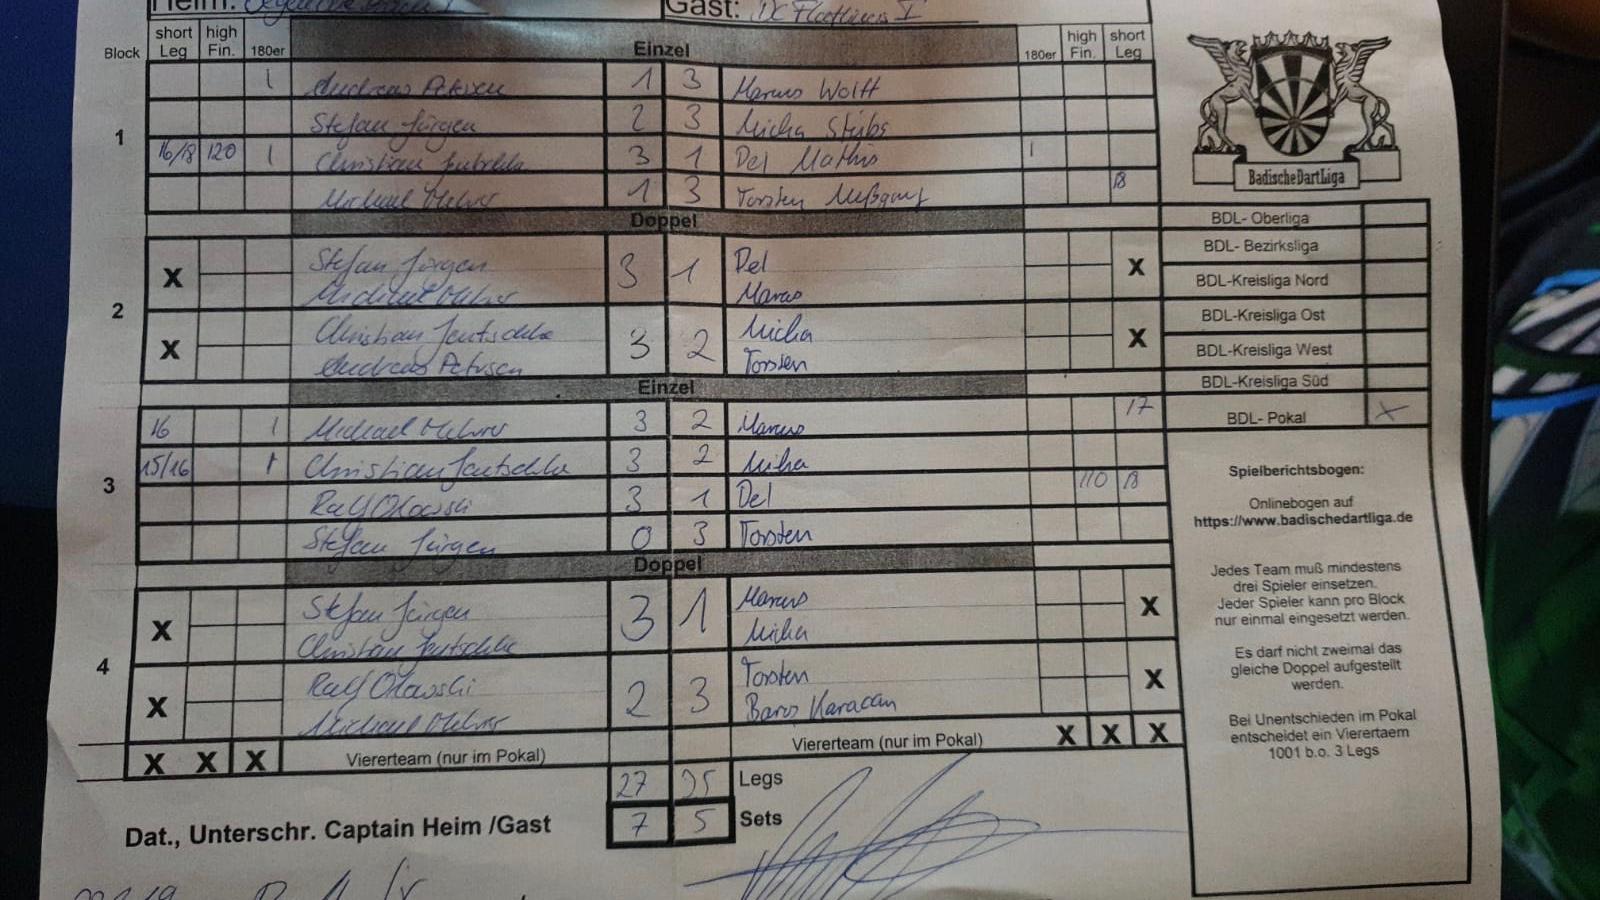 Heim: Gast: DC
Block short Leg high Fin. 180er Einzel 180er high Fin. short Leg
1
1 Andreas Petersen 1 3 Marcus Wolff
Stefan Jürgen 2 3 Micha Stübs
16/18 120 1 Christian 3 1 Del Mathis 1
Michael 1 3 Torsten Mußgauf 18
Doppel
2
X Stefan Jürgen 3 1 Del X
Michael Marcus
X Christian Jeutschke 3 2 Micha X
Andreas Petersen Torsten
Einzel
3
16 1 Michael 3 2 Marcus 17
15/16 1 Christian Jeutschke 3 2 Micha
Ralf Olowski 3 1 Del 110 18
Stefan Jürgen 0 3 Torsten
Doppel
4
X Stefan Jürgen 3 1 Marcus X
Christian Jeutschke Micha
X Ralf Olowski 2 3 Torsten X
Michael Baros Karacan
X X X Vierteam (nur im Pokal) Viererteam (nur im Pokal) X X X
27 25 Legs
Dat., Unterschr. Captain Heim /Gast 7 5 Sets
BadischeDartLiga
BDL- Oberliga
BDL- Bezirksliga
BDL-Kreisliga Nord
BDL-Kreisliga Ost
BDL-Kreisliga West
BDL-Kreisliga Süd
BDL- Pokal X
Spielberichtsbogen:
Onlinebogen auf
https://www.badischedartliga.de
Jedes Team muß mindestens
drei Spieler einsetzen.
Jeder Spieler kann pro Block
nur einmal eingesetzt werden.
Es darf nicht zweimal das
gleiche Doppel aufgestellt
werden.
Bei Unentschieden im Pokal
entscheidet ein Vierertaem
1001 b.o. 3 Legs